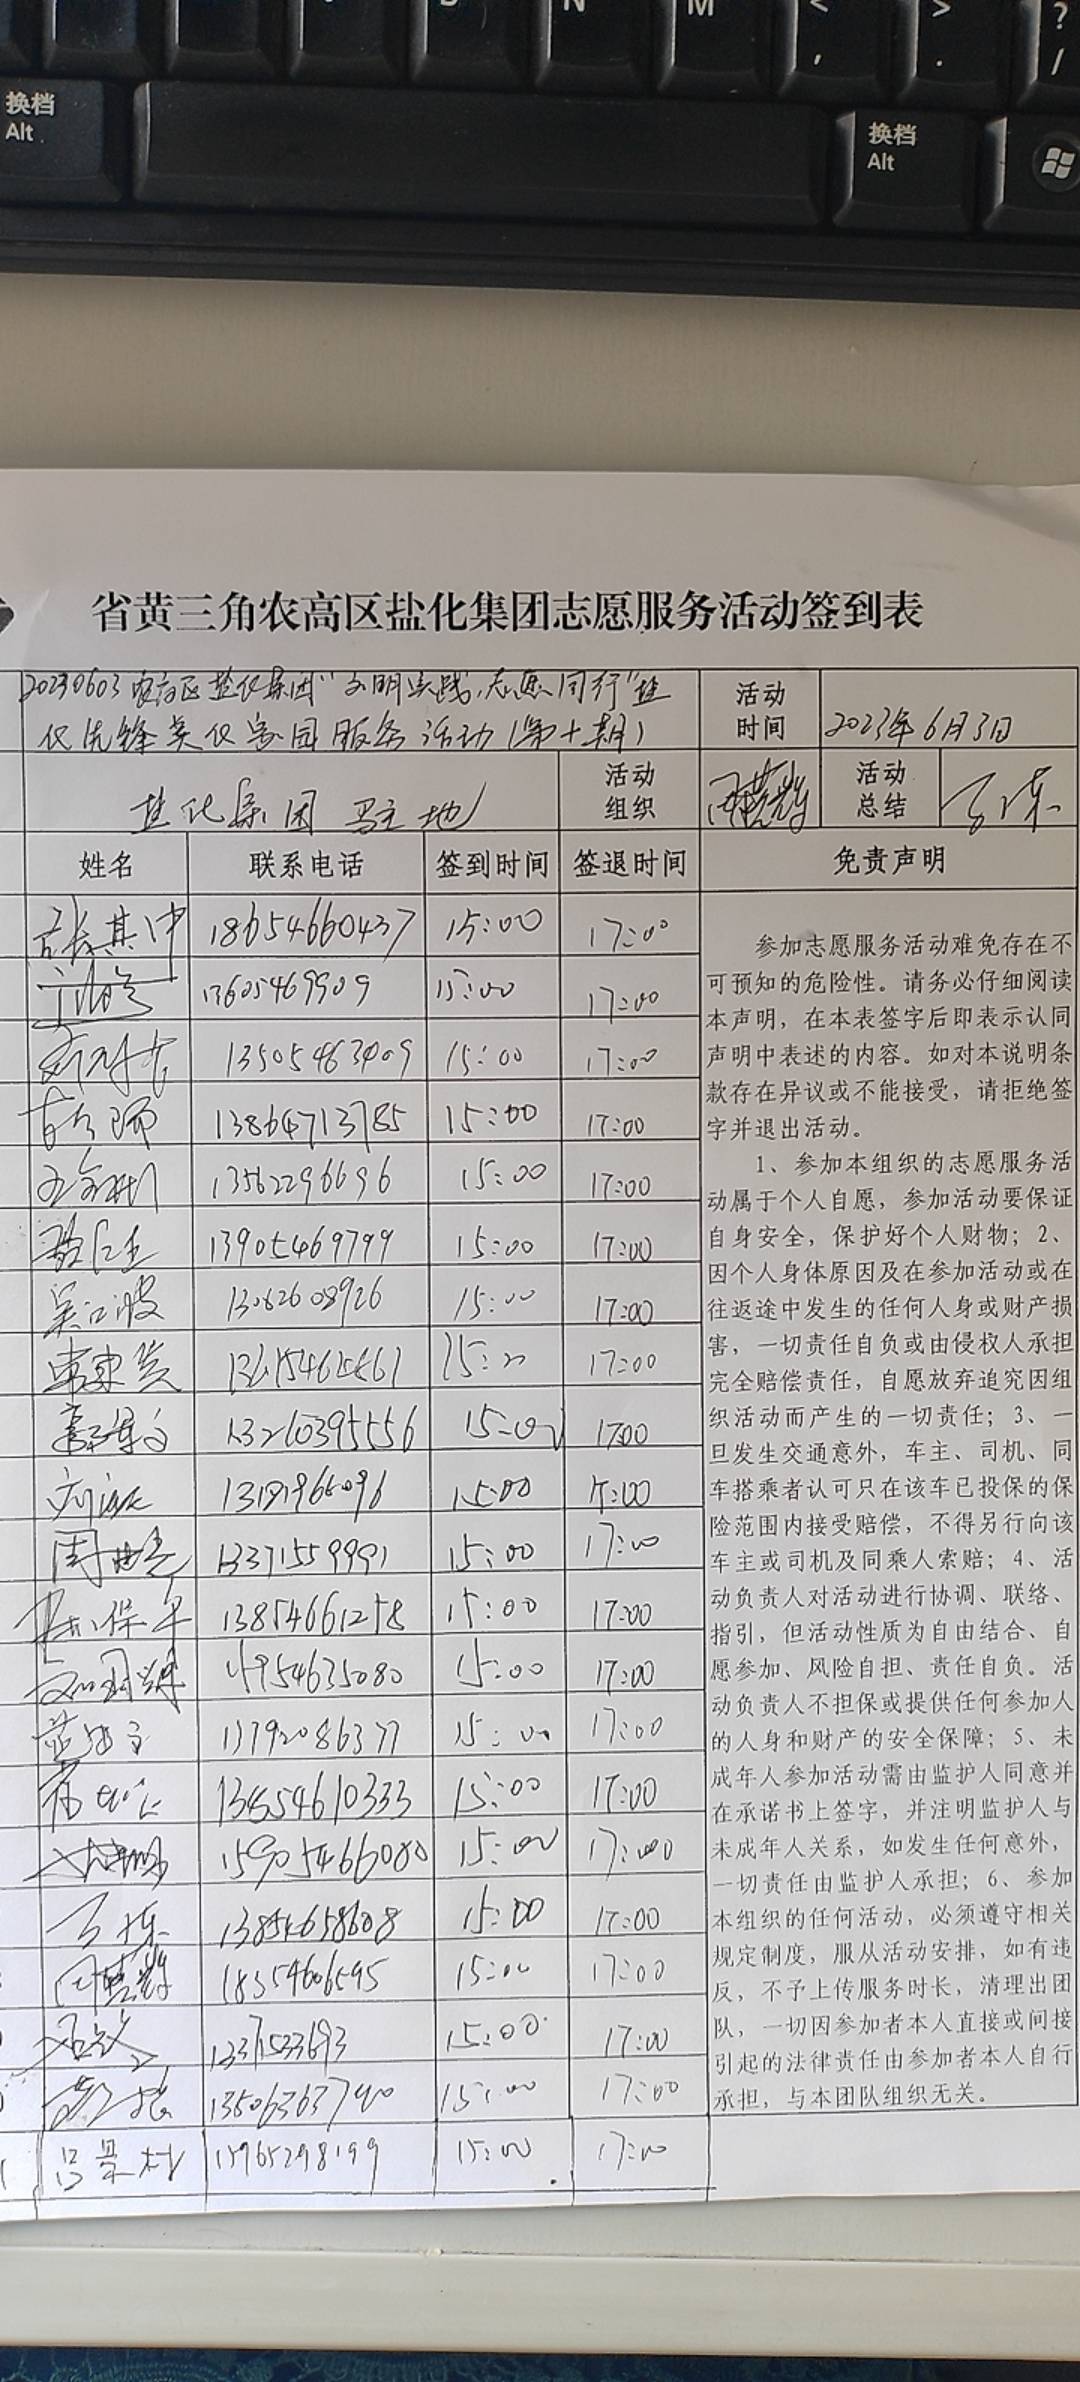 换档
Alt
B
N
M
<
,
>
.
?
/
换档
Alt
省黄三角农高区盐化集团志愿服务活动签到表
20230603农高区盐化集团"文明实践,志愿同行"盐
化先锋美化家园服务活动(第十期)
活动
时间
2023年6月3日
盐化集团驻地
活动
组织
活动
总结
姓名
联系电话
签到时间
签退时间
免责声明
张其中 18654660437 15:00 17:00
13605469909 15:00 17:00
13505463409 15:00 17:00
13864713785 15:00 17:00
13562296696 15:00 17:00
13905469799 15:00 17:00
吴江波 13062608926 15:00 17:00
15:00 17:00
13260395556 15:00 17:00
15:00
13371559991 15:00 17:00
13854661258 15:00 17:00
15954635080 15:00 17:00
15:00 17:00
13854610333 15:00 17:00
15905466080 15:00 17:00
13854658608 15:00 17:00
18354606595 15:00 17:00
13371533693 15:00 17:00
15:00 17:00
吕景村 15965298199 15:00 17:00
参加志愿服务活动难免存在不
可预知的危险性。请务必仔细阅读
本声明，在本表签字后即表示认同
声明中表述的内容。如对本说明条
款存在异议或不能接受，请拒绝签
字并退出活动。
1、参加本组织的志愿服务活
动属于个人自愿，参加活动要保证
自身安全，保护好个人财物；2、
因个人身体原因及在参加活动或在
往返途中发生的任何人身或财产损
害，一切责任自负或由侵权人承担
完全赔偿责任，自愿放弃追究因组
织活动而产生的一切责任；3、一
旦发生交通意外，车主、司机、同
车搭乘者认可只在该车已投保的保
险范围内接受赔偿，不得另行向该
车主或司机及同乘人索赔；4、活
动负责人对活动进行协调、联络、
指引，但活动性质为自由结合、自
愿参加、风险自担、责任自负。活
动负责人不担保或提供任何参加人
的人身和财产的安全保障；5、未
成年人参加活动需由监护人同意并
在承诺书上签字，并注明监护人与
未成年人关系，如发生任何意外，
一切责任由监护人承担；6、参加
本组织的任何活动，必须遵守相关
规定制度，服从活动安排，如有违
反，不予上传服务时长，清理出团
队，一切因参加者本人直接或间接
引起的法律责任由参加者本人自行
承担，与本团队组织无关。